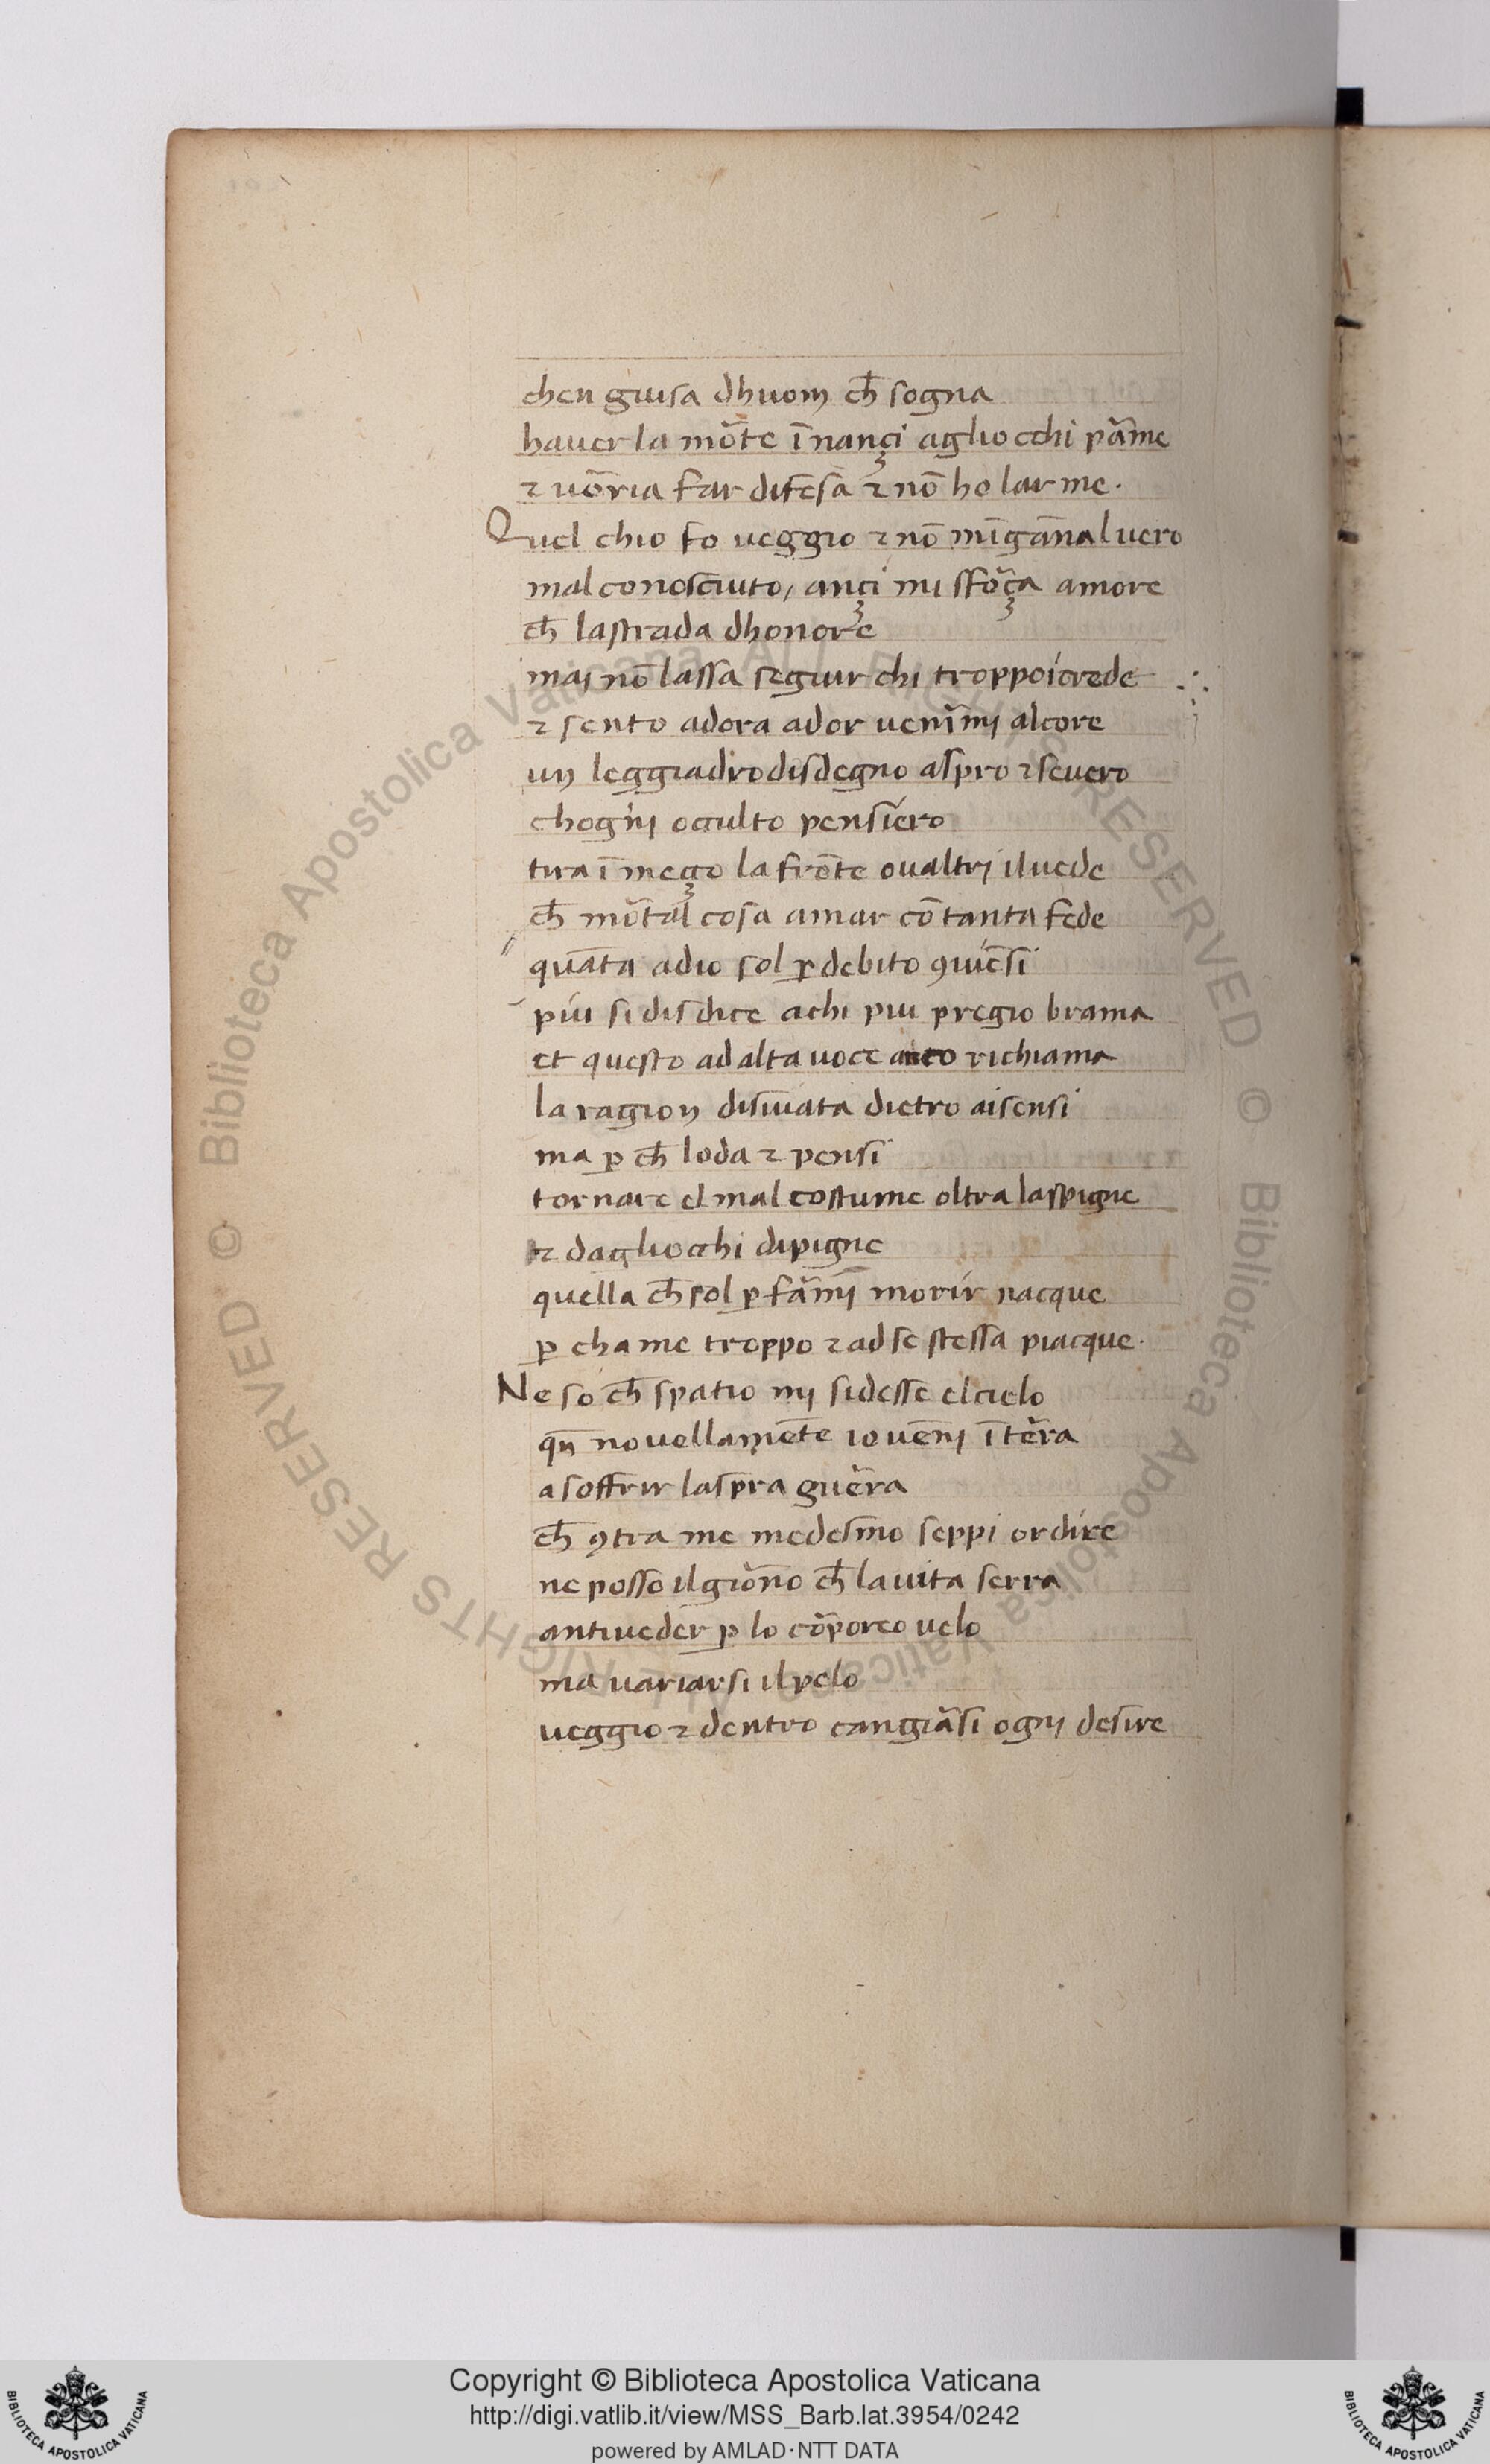 chen guisa dhuom ch̄ sogna
hauer la mõte ĩnançi agliocchi pãme
⁊ uõria far difesa ⁊ nõ ho larme.
Quel chio fo ueggio ⁊ nõ mĩgãna l uero
mal conosciuto, ançi mi sfõça amore
ch̄ la strada dhonore
mai nõ lassa seguir chi troppo icrede
⁊ sento adora ador uenĩmi alcore
un leggiadro disdegno aspro ⁊ seuero
chogni occulto pensiero
tira ĩ meço la frõte oualtri iluede
ch̄ mõtal cosa amar cõ tanta fede
quãta adio sol ꝑ debito ꝯuẽsi
piu si disdice achi piu pregio brama
et questo ad alta uoce anco richiama
la ragion disuiata dietro aisensi
ma ꝑ ch̄ loda ⁊ pensi
tornare el mal costume oltra laspigne
⁊ dagliocchi dipigne
quella ch̄ sol ꝑ fãmi morir nacque
ꝑ cha me troppo ⁊ ad se stessa piacque.
Ne so ch̄ spatio mi sidesse elcielo
qñ nouellamẽte io uẽni ĩ tẽra
a soffrir laspra guẽra
ch̄ ꝯtra me medesmo seppi ordire
ne posso il giõno ch̄ la uita serra
antiueder ꝑ lo cõporeo uelo
ma uariarsi il pelo
ueggio ⁊ dentro cangiãsi ogni desire
© Biblioteca Apostolica Vaticana ALL RIGHTS RESERVED © Biblioteca Apostolica Vaticana ALL RIGHTS RESERVED
Copyright © Biblioteca Apostolica Vaticana
http://digi.vatlib.it/view/MSS_Barb.lat.3954/0242
powered by AMLAD·NTT DATA
BIBLIOTECA APOSTOLICA VATICANA
BIBLIOTECA APOSTOLICA VATICANA